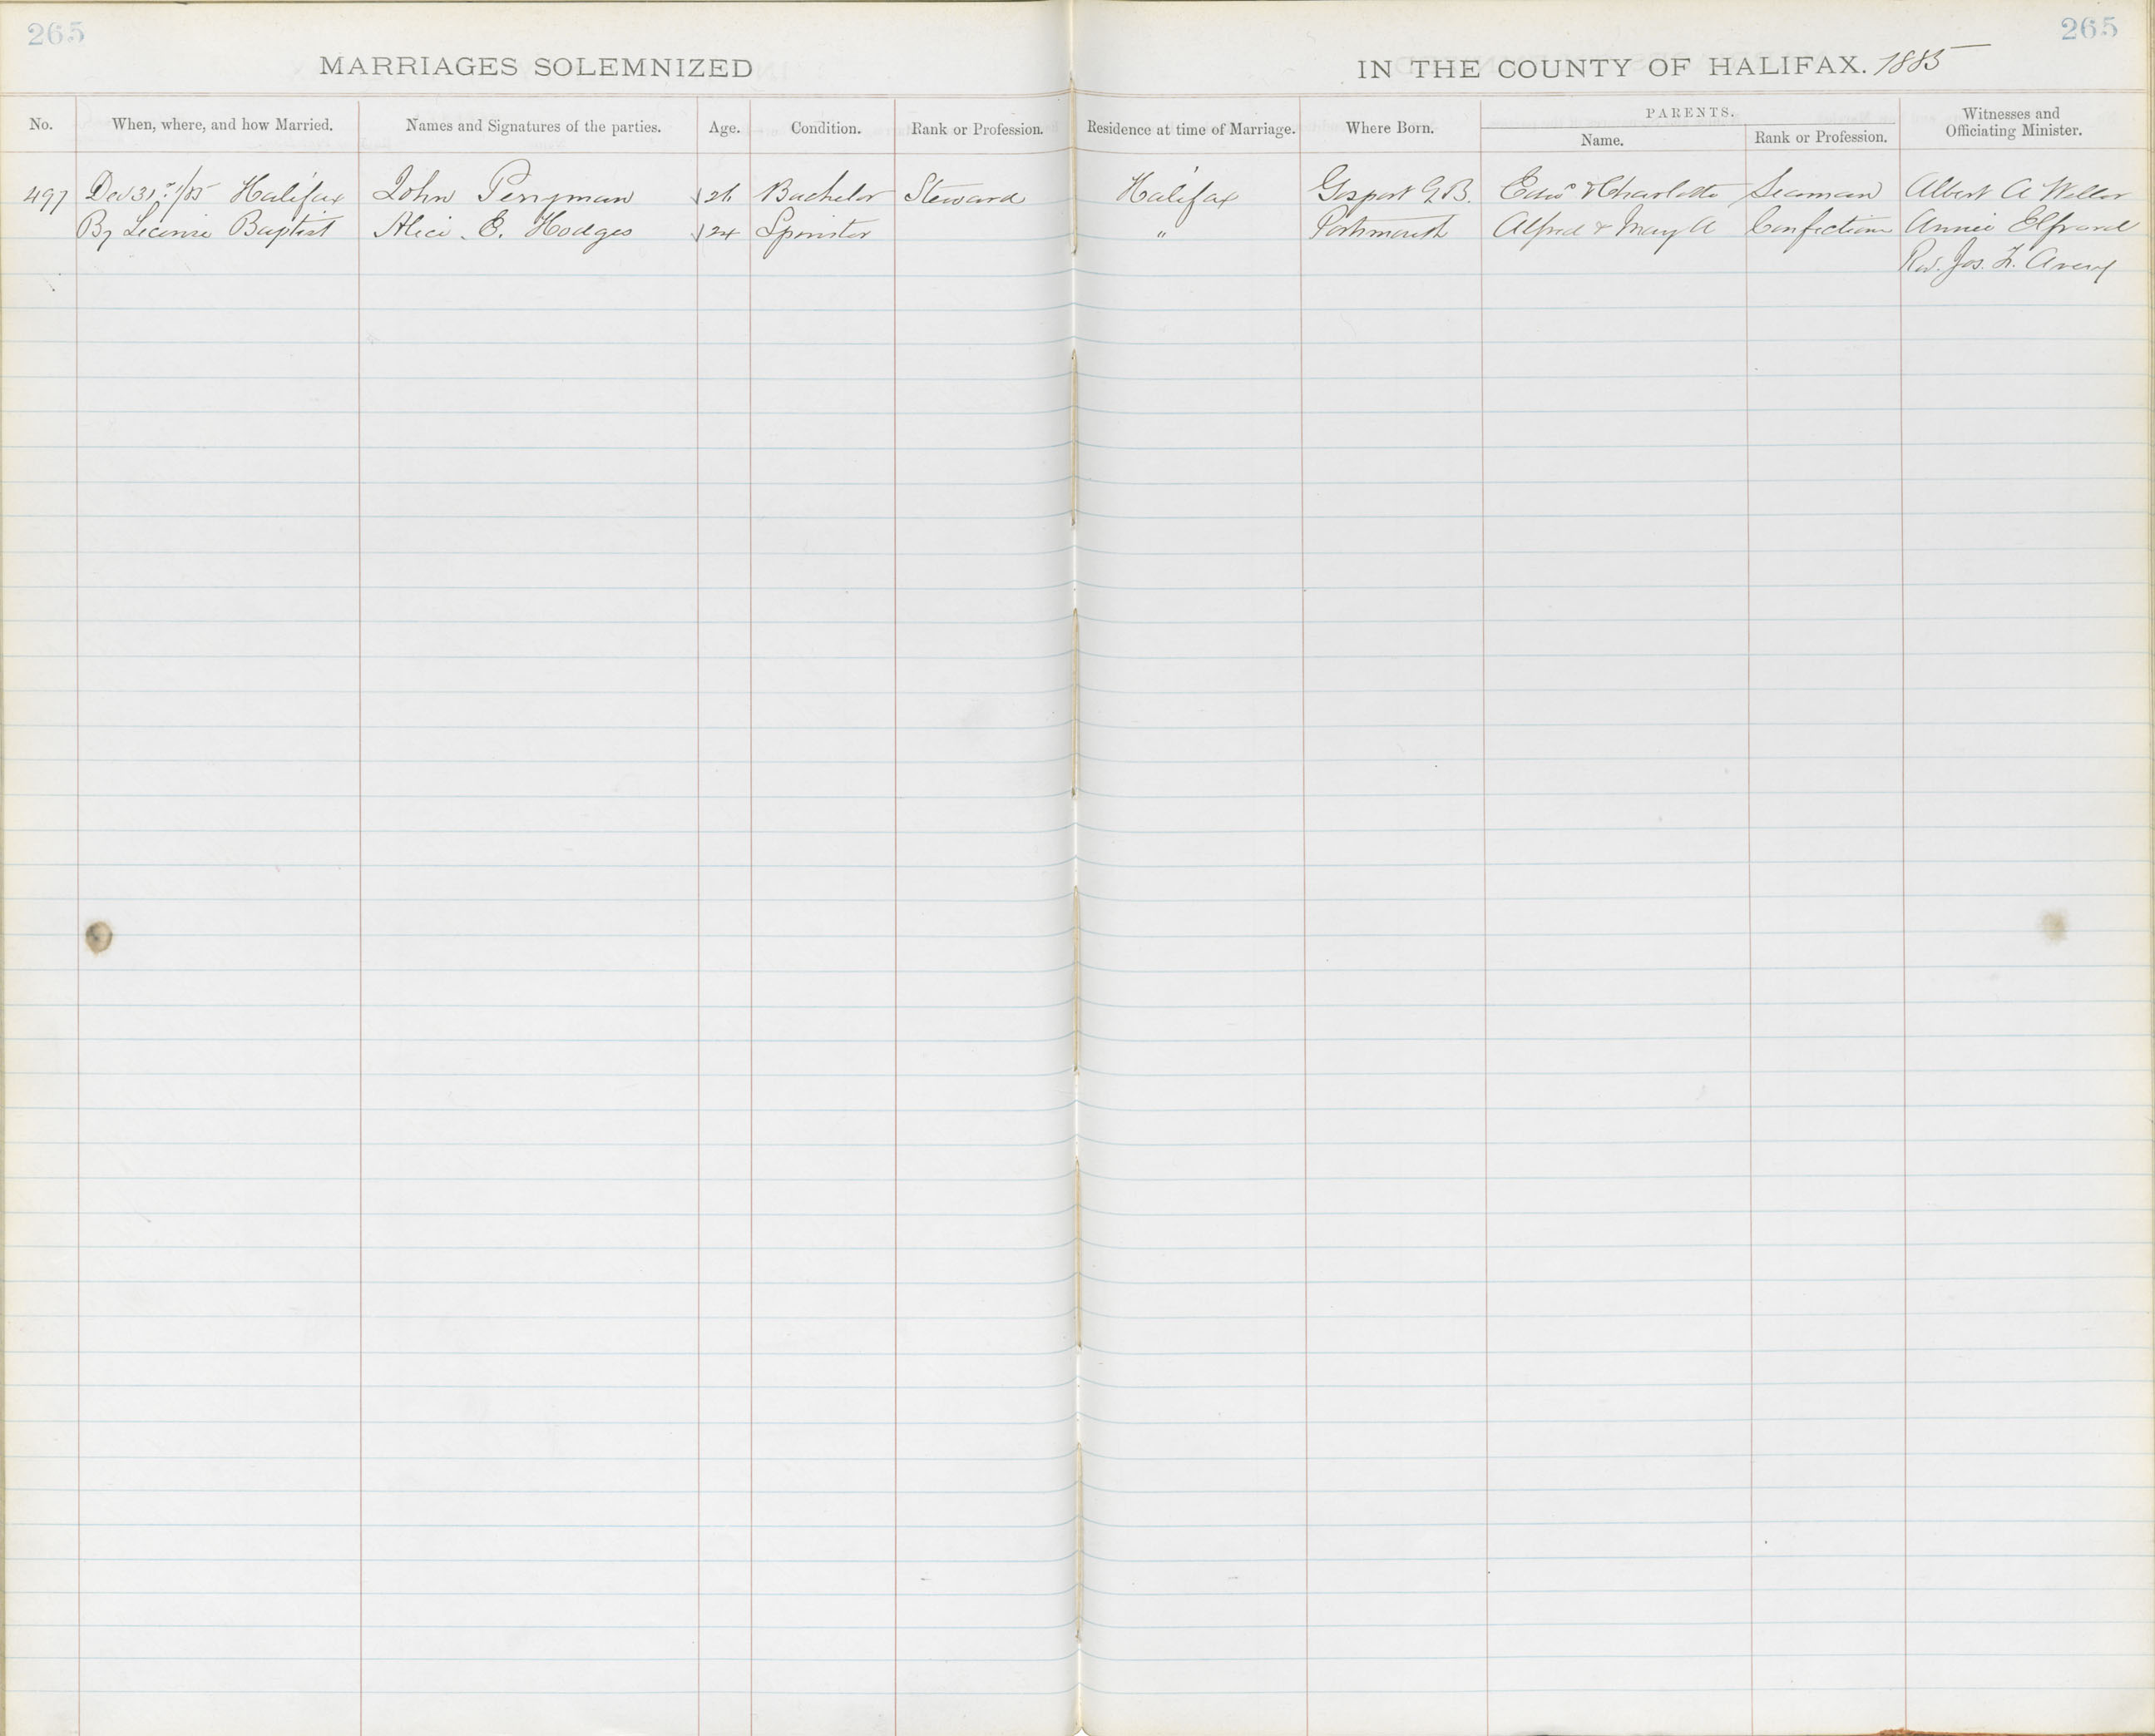 265 265
MARRIAGES SOLEMNIZED IN THE COUNTY OF HALIFAX. 1885
No. When, where, and how Married. Names and Signatures of the parties. Age. Condition. Rank or Profession. Residence at time of Marriage. Where Born. PARENTS. Name. Rank or Profession. Witnesses and Officiating Minister.
497 Dec 31st/85 Halifax John Pengman 26 Bachelor Steward Halifax Gosport G.B. Edwd & Charlotte Seaman Albert A Weller
By License Baptist Alice E. Hodges 24 Spinster " Portsmouth Alfred & Mary A Annie
Rev. Jos. F. Avery